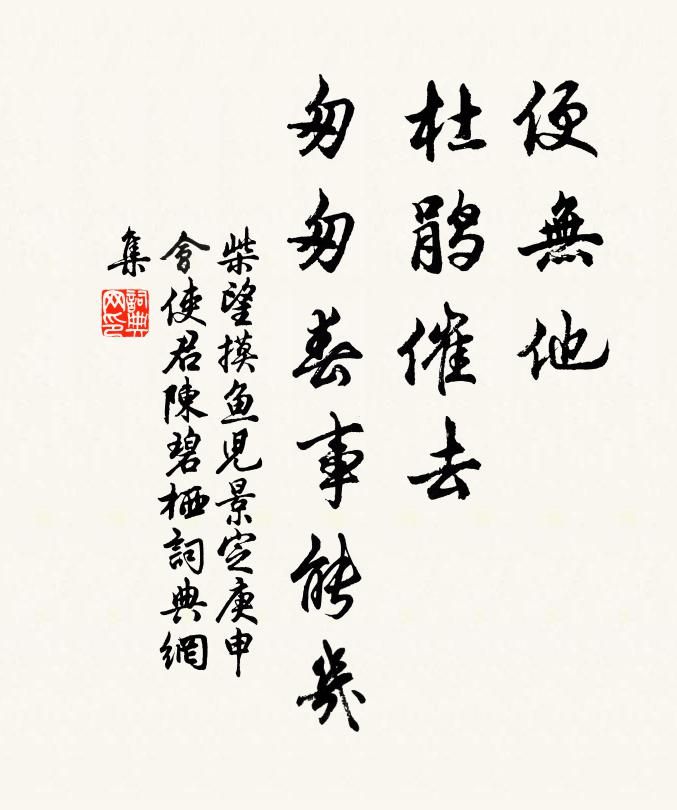 便無他
杜鹃催去
匆匆春事能幾
柴望摸鱼児景定庚申
會使君陳碧栖詞典網
集
詞典
网印